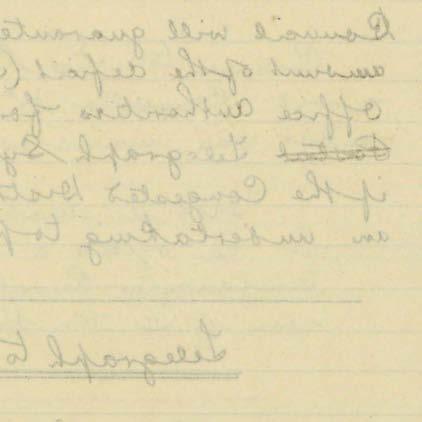 Council will guarantee
amount of the deficit (
Office Authorities for
Postal Telegraph Sy
if the Congested Distri
an undertaking to p
Telegraph to